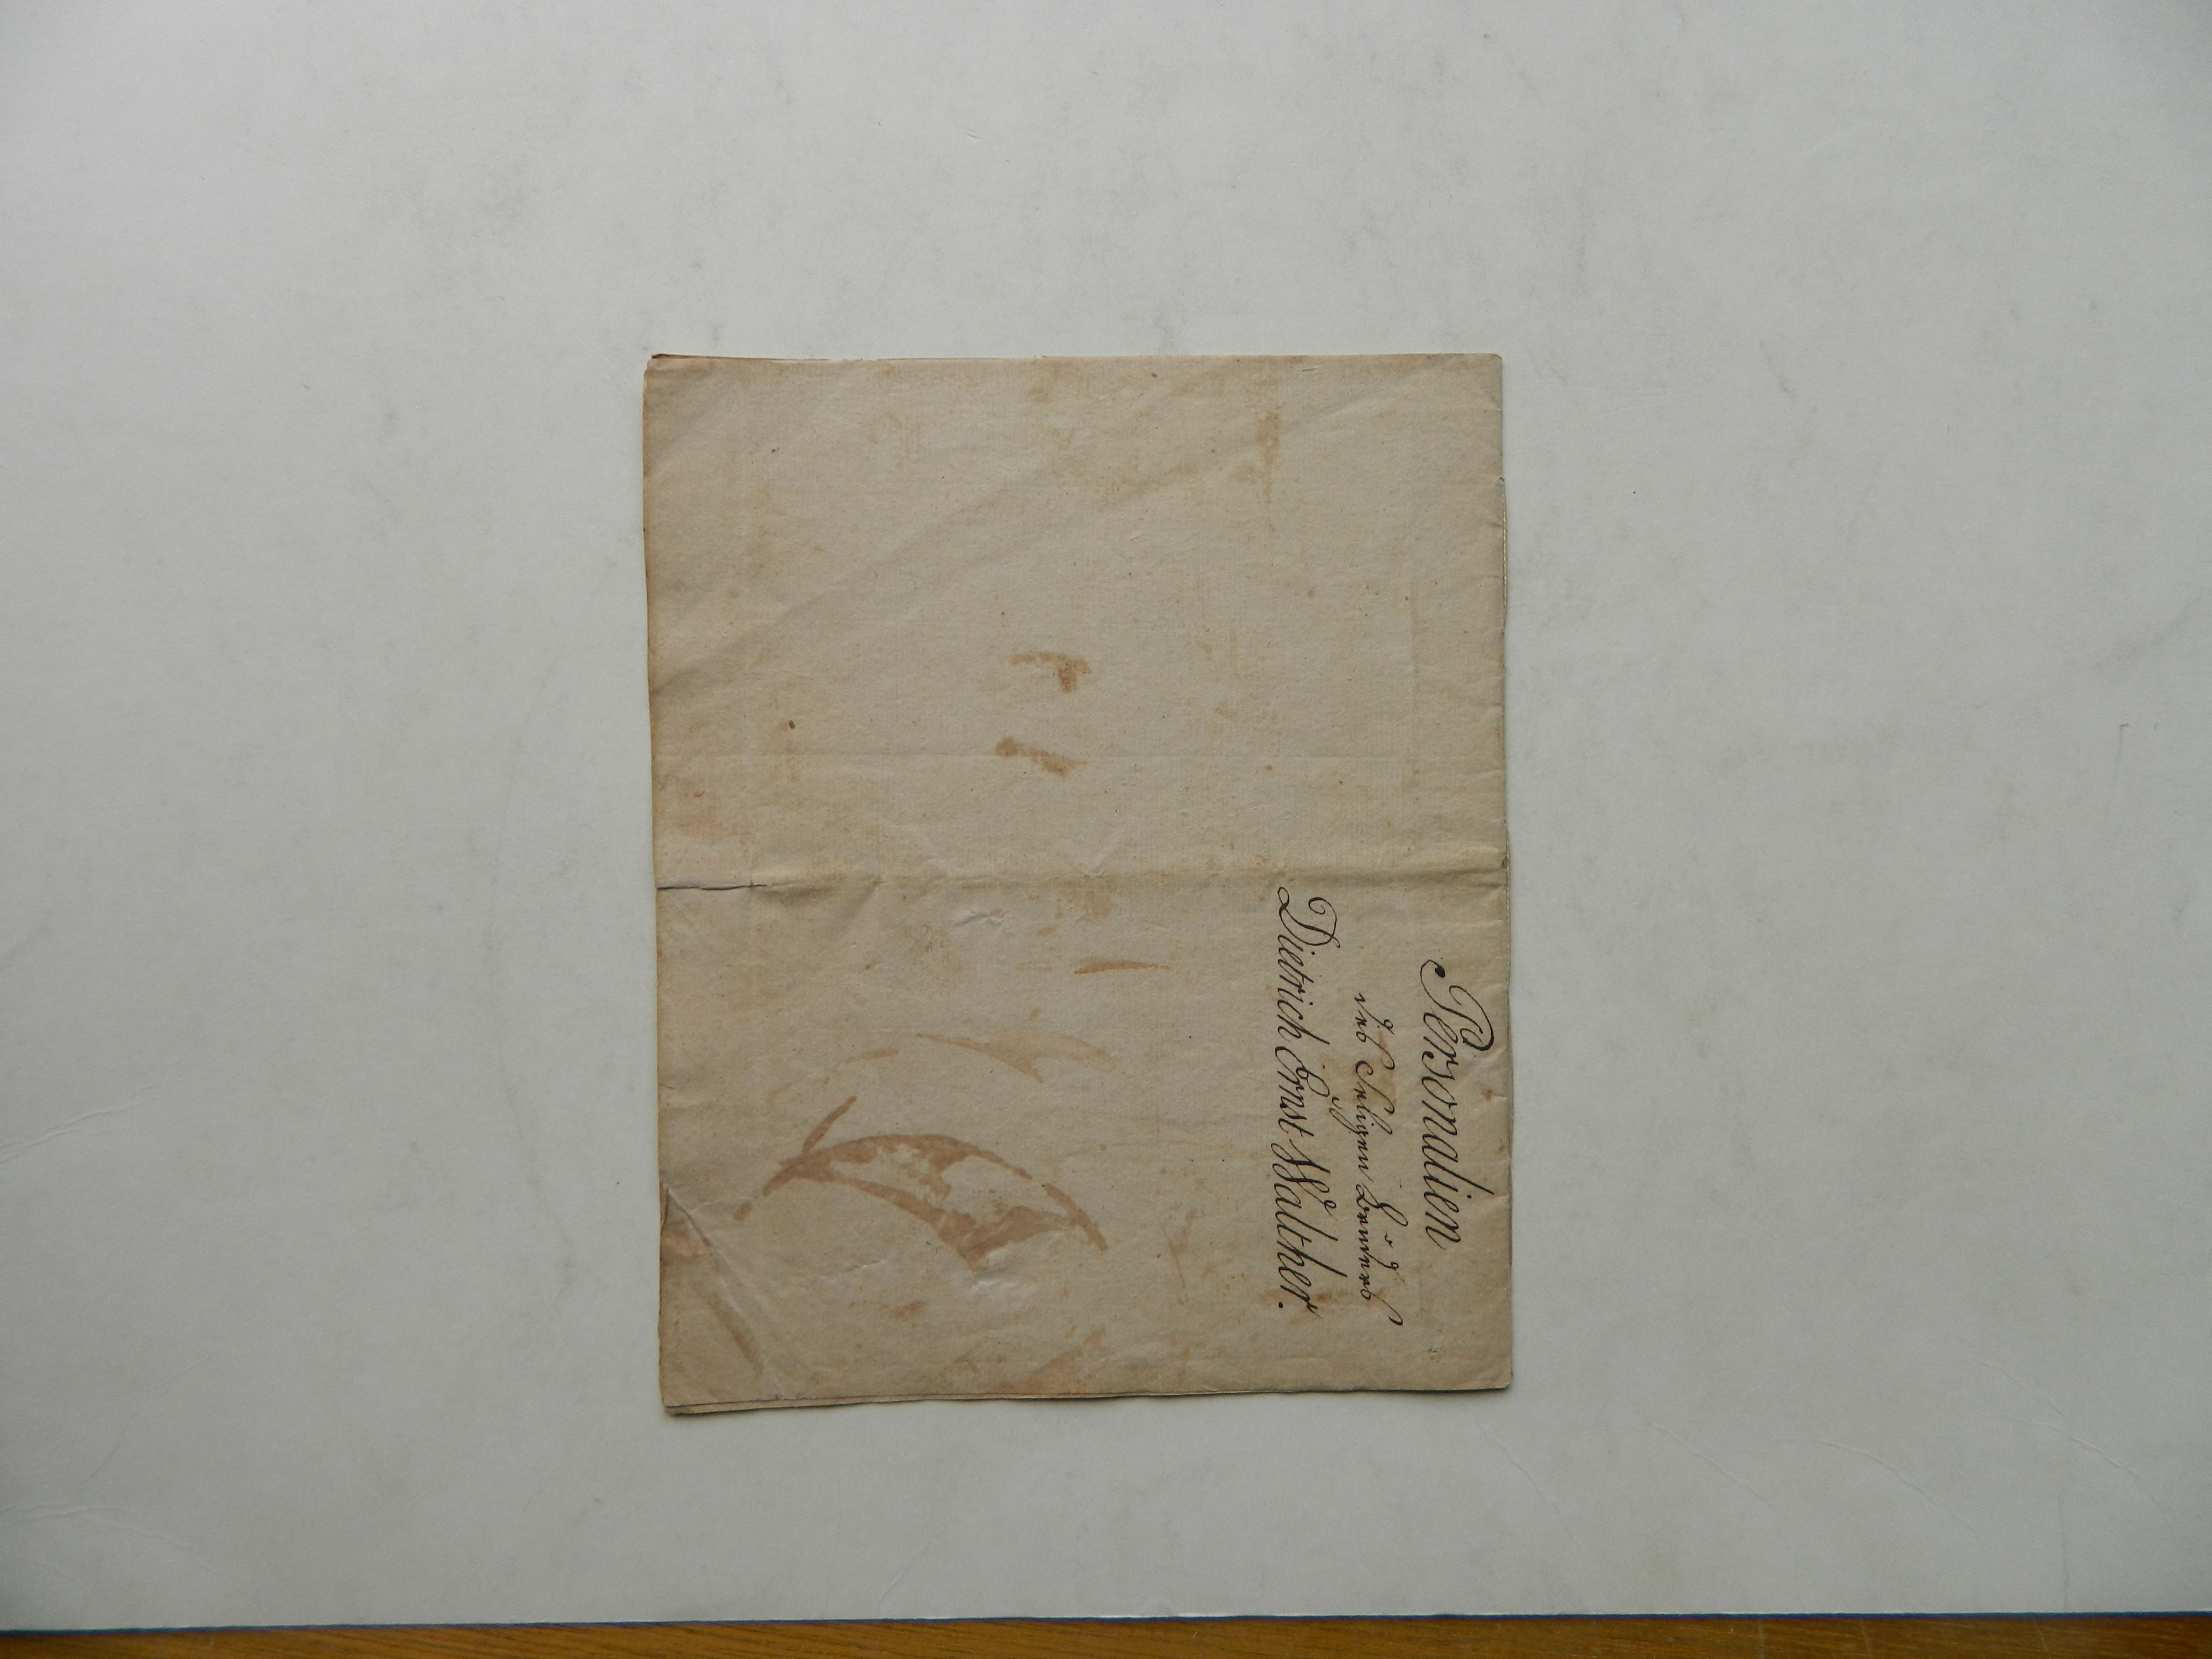 Personalien
des Seligen Bruders
Dietrich Ernst Walther.